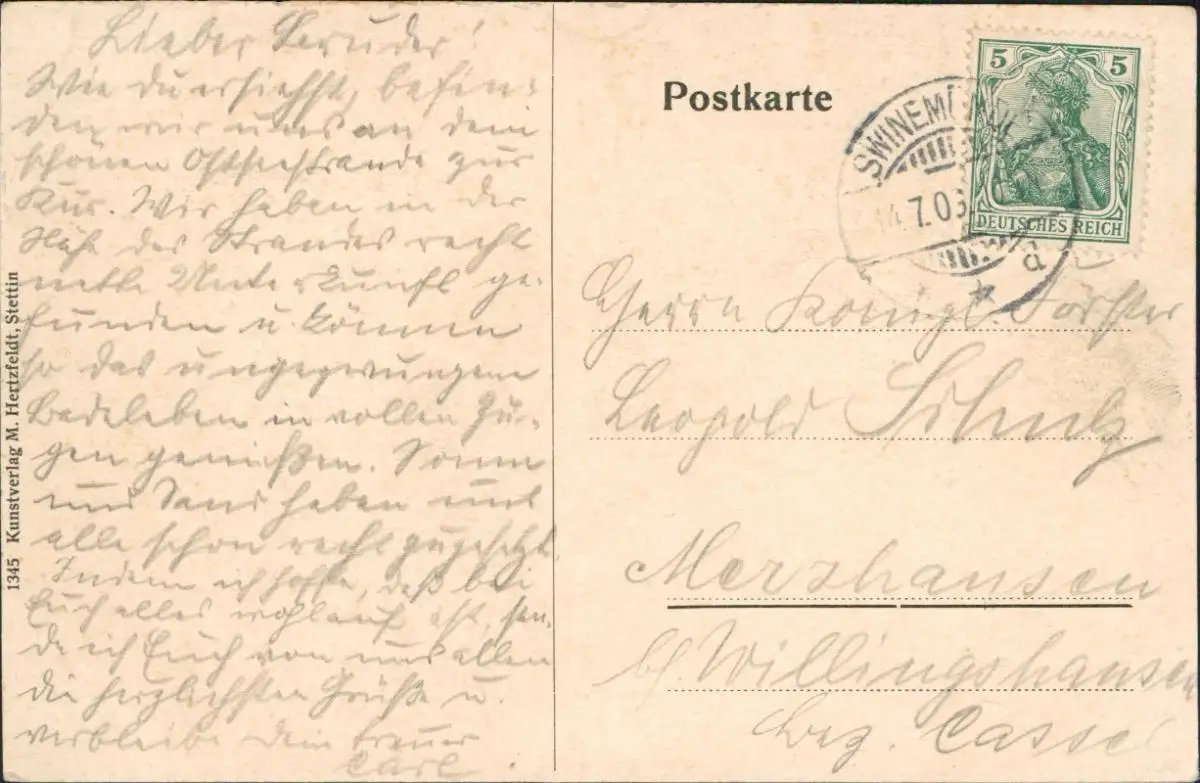 Lieber Bruder!
Wie du ersiehst, befin-
den wir uns an dem
schönen Ostseestrande zur
Kur. Wir haben in der
Nähe des Strandes recht
nette Unterkunft ge-
funden u. können
so das ungezwungene
Badeleben in vollen Zü-
gen genießen. Sonne
und Sand haben uns
alle schon recht zugesetzt.
Indem ich hoffe, daß bei
Euch alles wohlauf ist, sen-
de ich Euch von uns allen
die herzlichsten Grüße u.
verbleibe Dein treuer
Carl
1345 Kunstverlag M. Hertzfeldt, Stettin
Postkarte
5 5
DEUTSCHES REICH
SWINEMÜNDE
14.7.06
a
Herrn Königl. Förster
Leopold Schulz
Merzhausen
b/ Willingshausen
Bez. Cassel